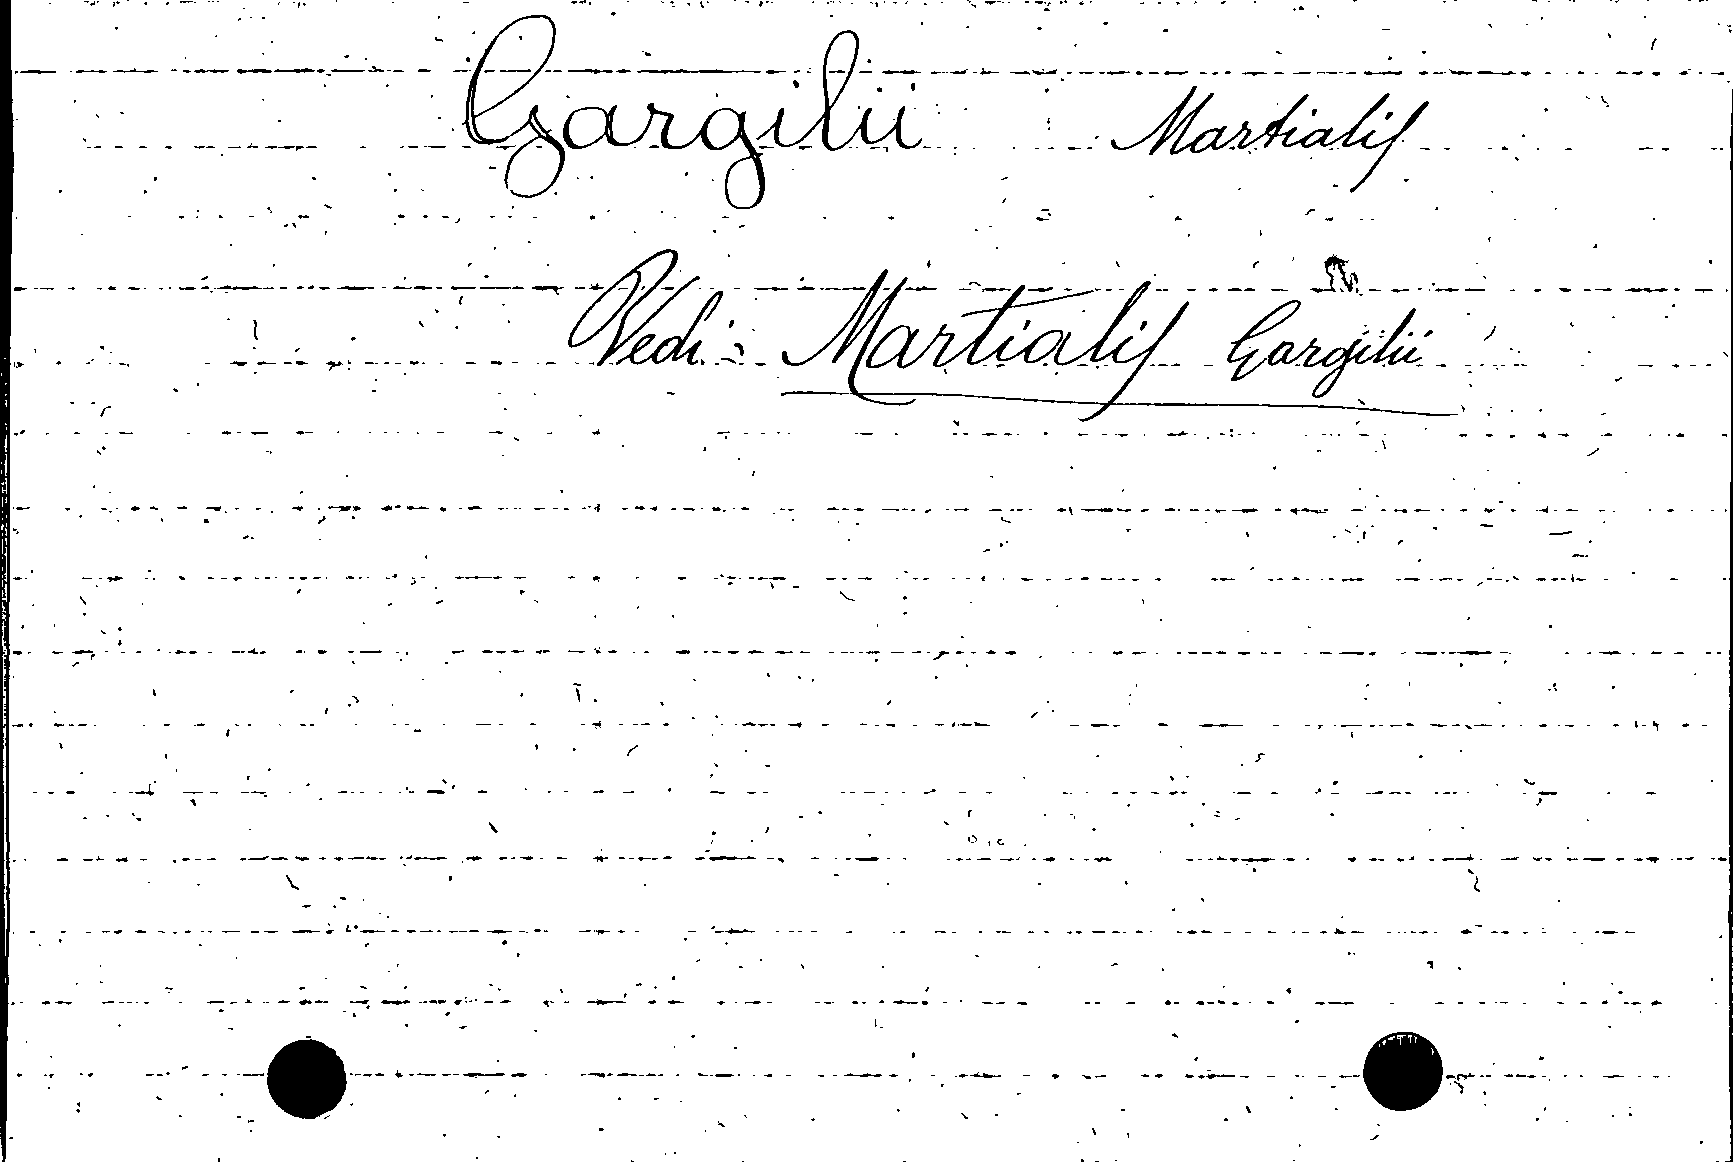 Gargilii Martialis
Vedi: Martialis Gargilii